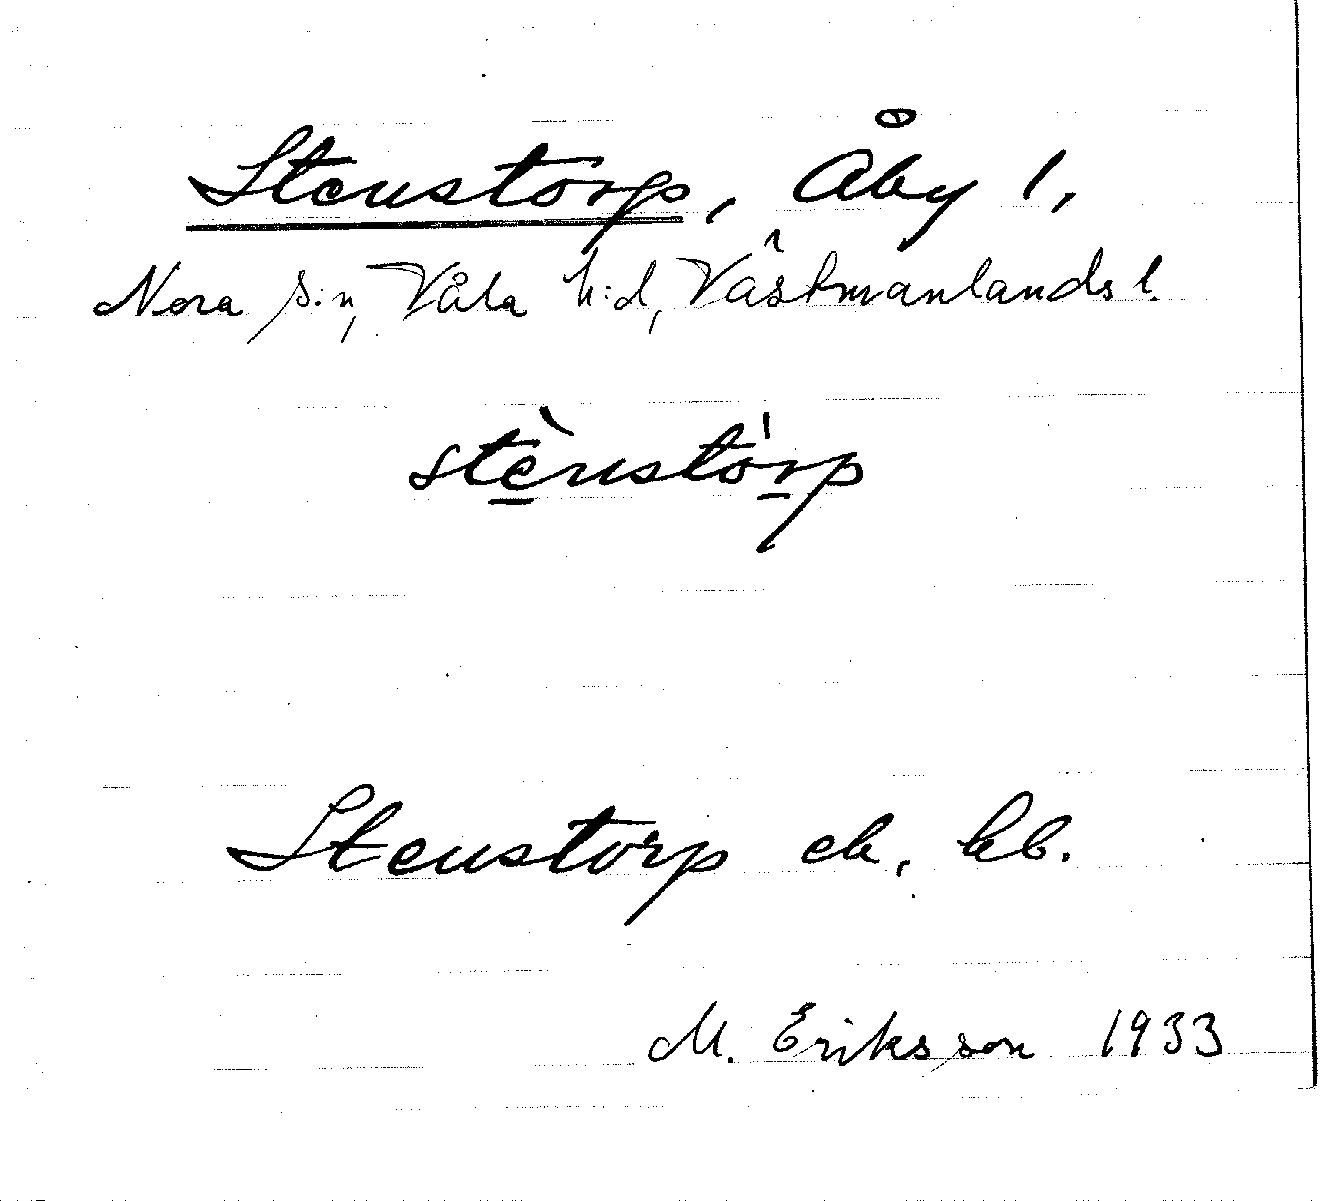 Stenstorp, Åby 1,
Nora s:n, Våla h:d, Västmanlands l.
stènstó̱rp
Stenstorp ek. kb.
M. Eriksson 1933